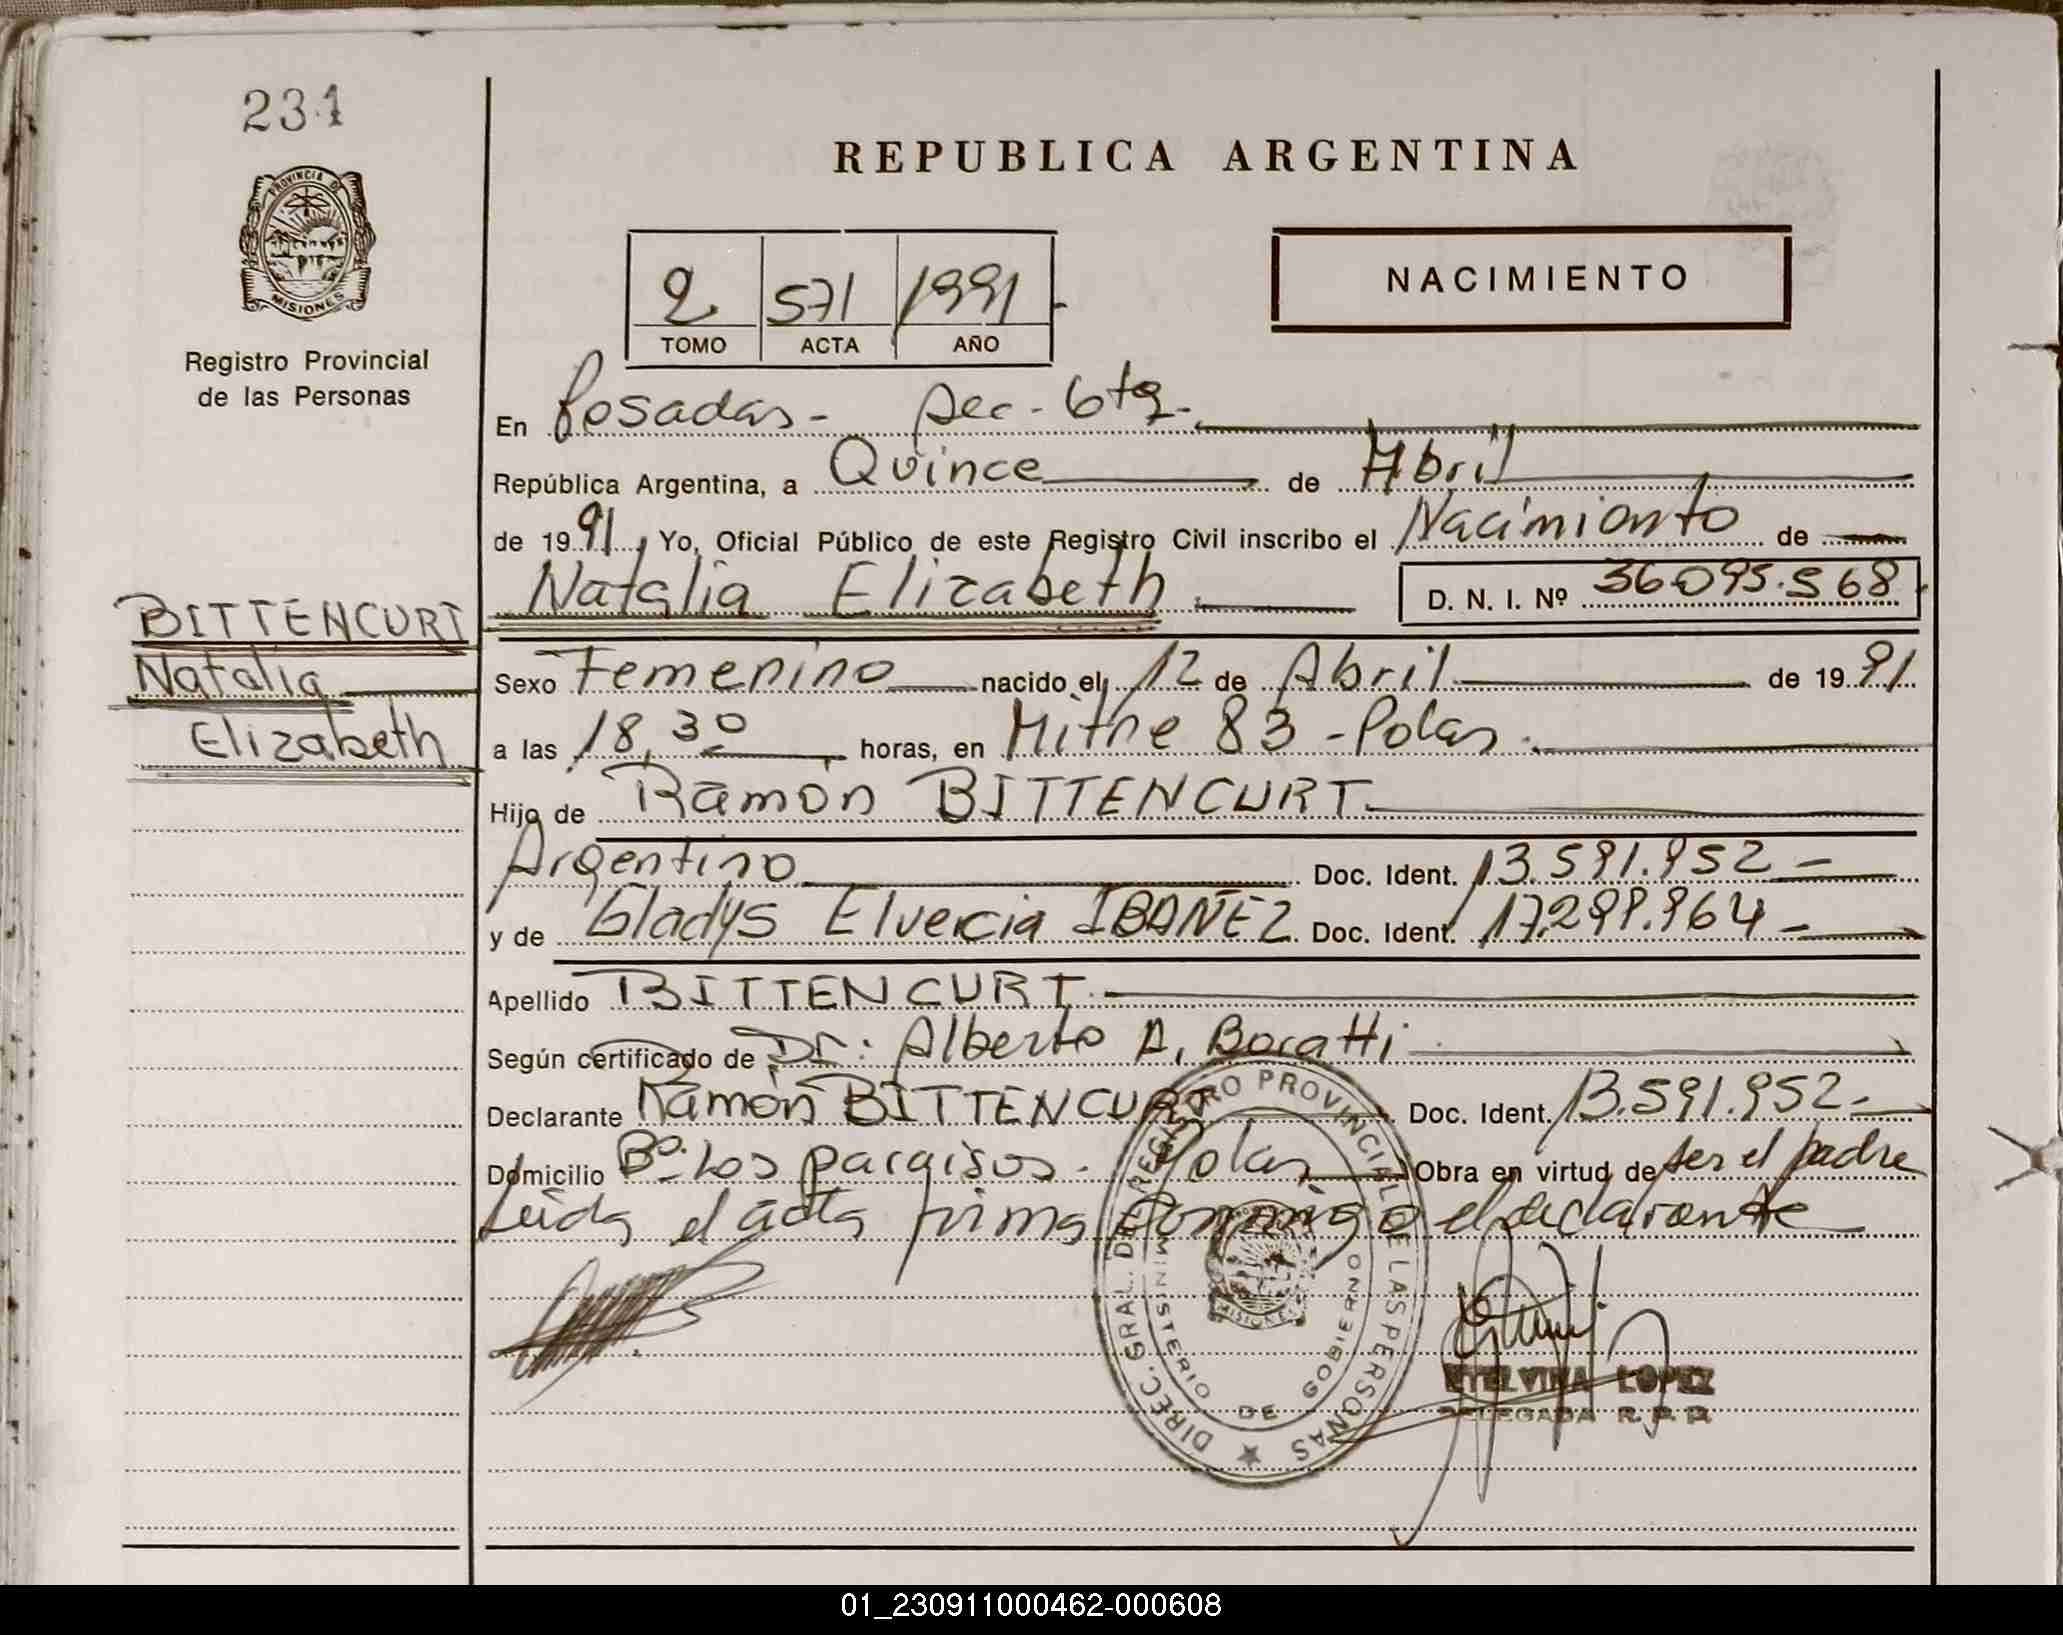 231
PROVINCIA DE
MISIONES
Registro Provincial
de las Personas
REPUBLICA ARGENTINA
2 571 1991
TOMO ACTA AÑO
NACIMIENTO
En Posadas - Sec - 6ta.
República Argentina, a Quince de Abril
de 1991, Yo, Oficial Público de este Registro Civil inscribo el Nacimiento de
Natalia Elizabeth D. N. I. Nº 36095.568
BITTENCURT
Natalia
Elizabeth
Sexo Femenino nacido el 12 de Abril de 1991
a las 18,30 horas, en Mitre 83 - Pdas.
Hijo de Ramón BITTENCURT
Argentino Doc. Ident. 13.591.952 -
y de Gladys Elvecia IBAÑEZ Doc. Ident. 17.299.964 -
Apellido BITTENCURT.
Según certificado de Dr: Alberto A. Boratti
Declarante Ramón BITTENCURT Doc. Ident. 13.591.952 -
Domicilio Bº: Los paraisos - Pdas Obra en virtud de ser el padre
Leida el acta firma conmigo el declarante
DIREC. GRAL. DEL REGISTRO PROVINCIAL DE LAS PERSONAS
MINISTERIO DE GOBIERNO
MISIONES
ETELVINA LOPEZ
DELEGADA R. P. P.
01_230911000462-000608